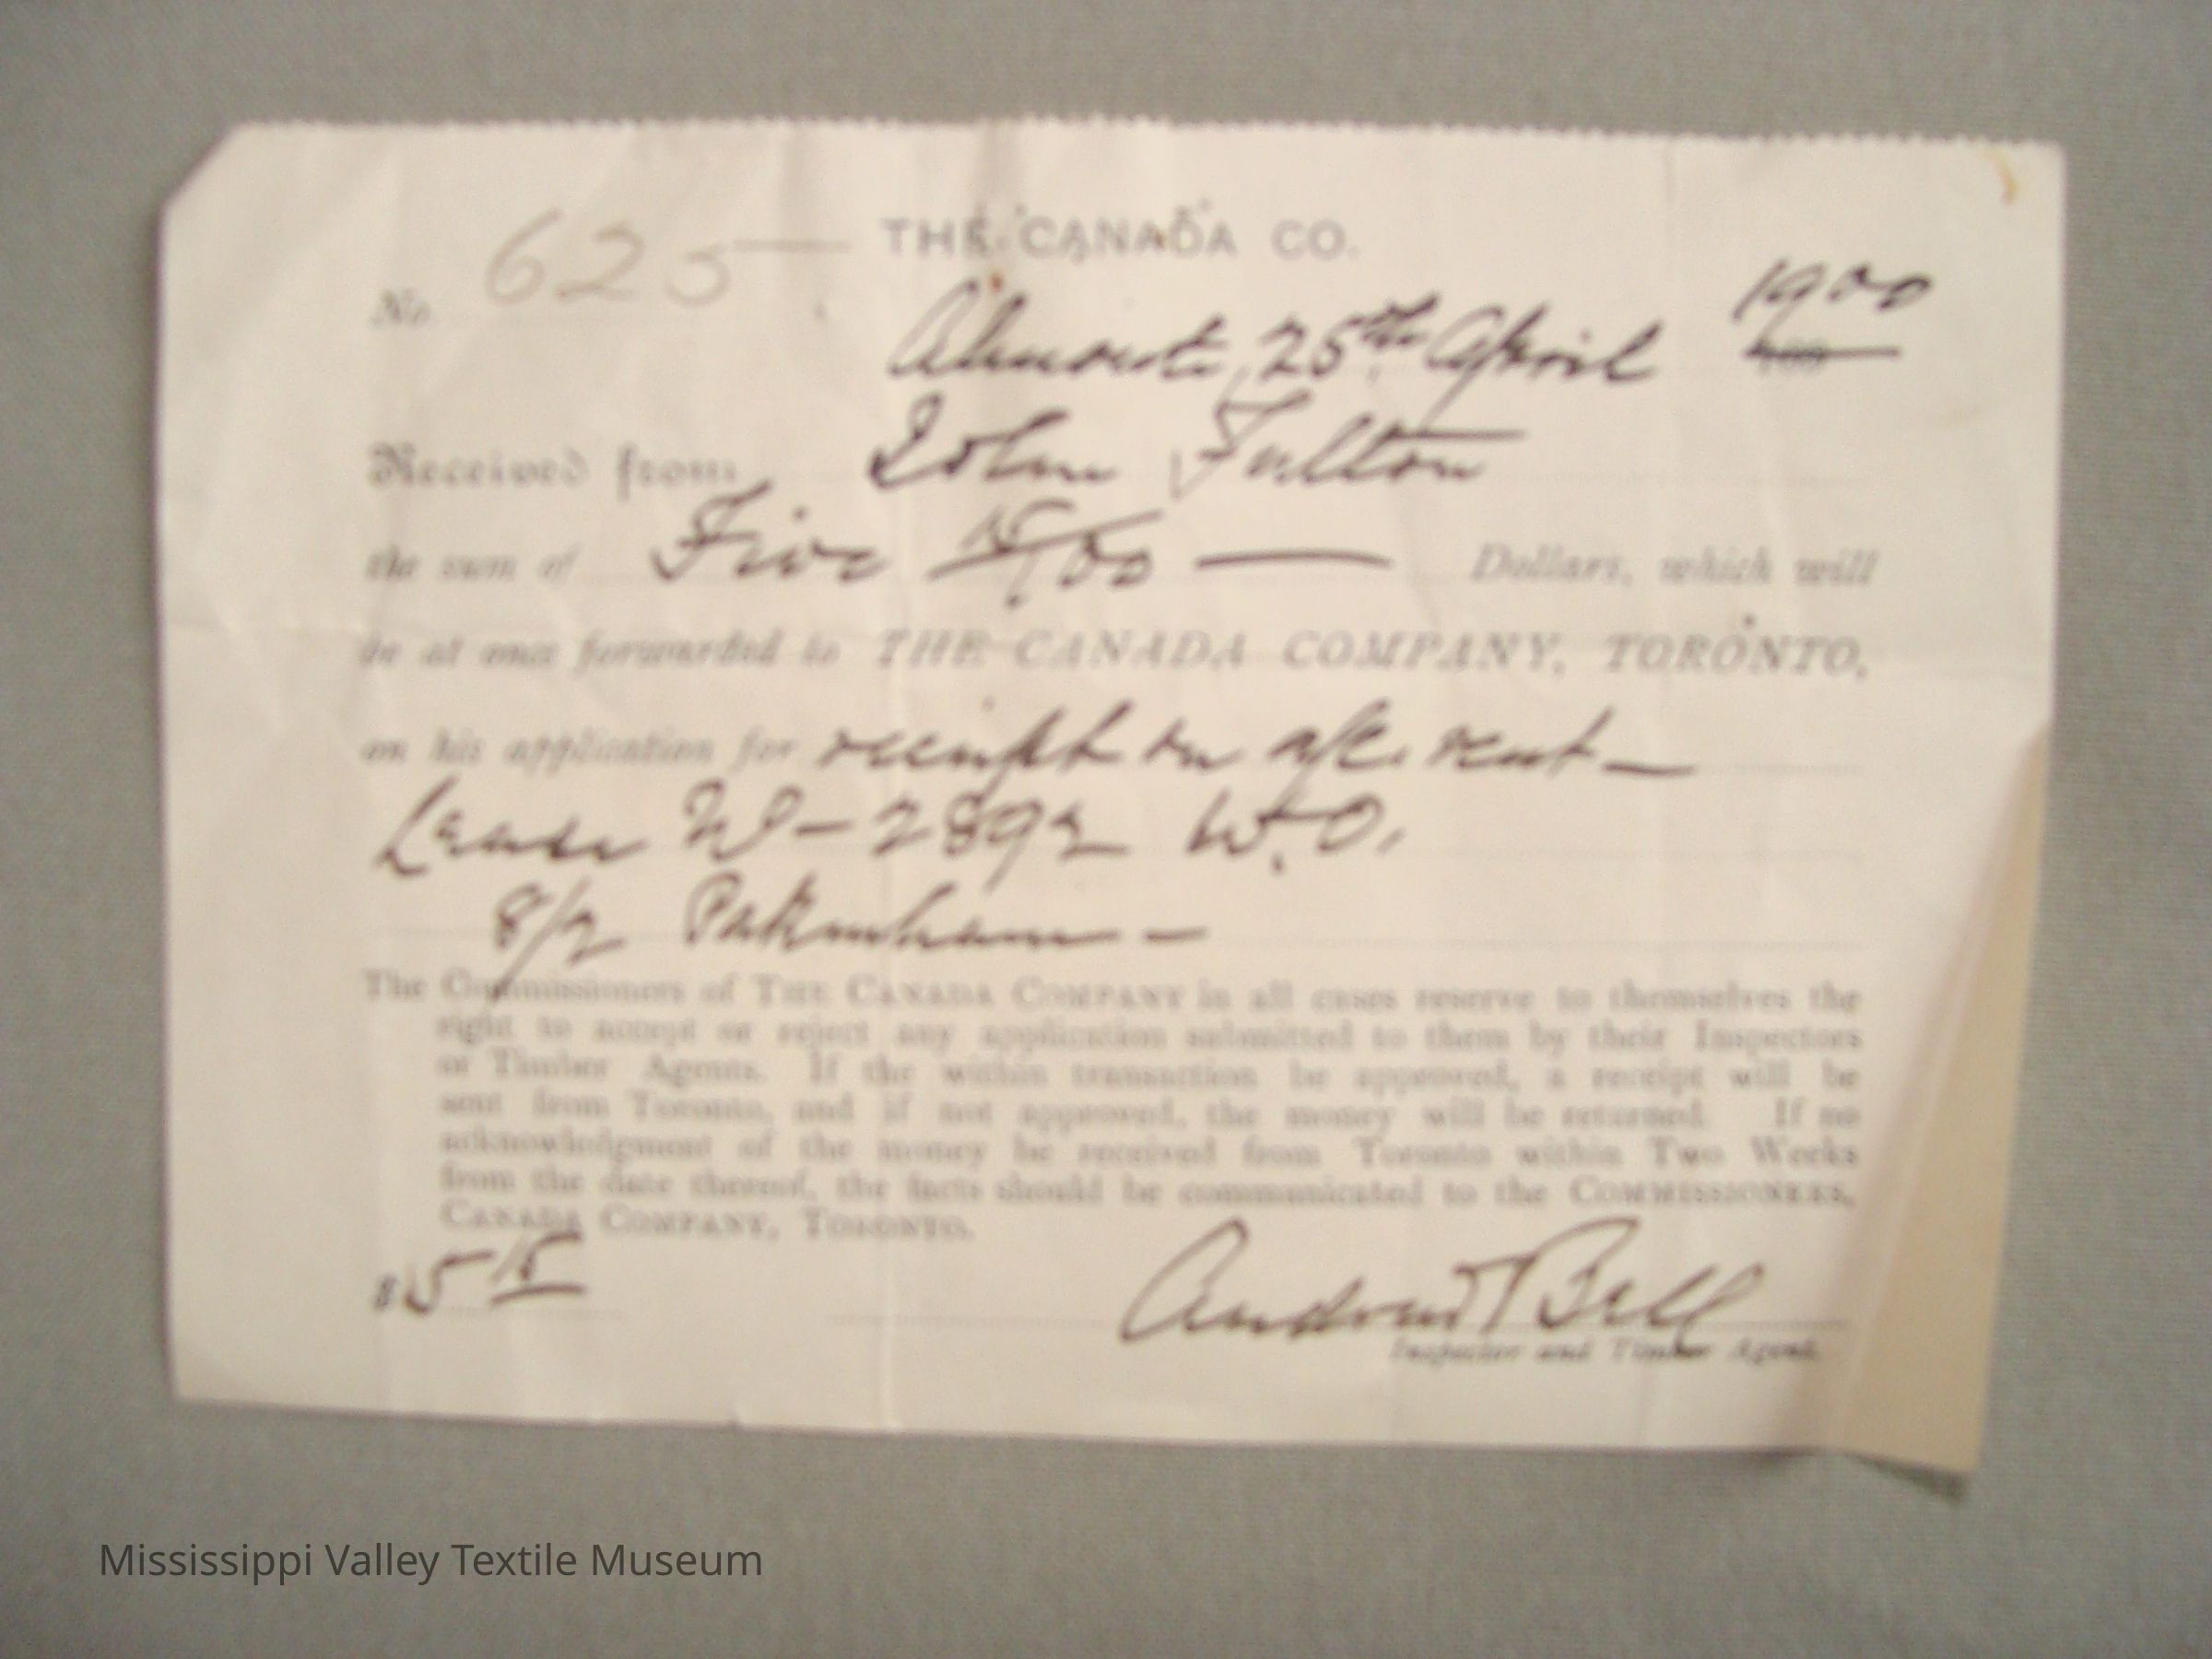 THE CANADA CO.
No. 625
Almonte, 25th April 1900
Received from John Fulton
the sum of Five 15/100 — Dollars, which will
be at once forwarded to THE CANADA COMPANY, TORONTO,
on his application for receipt on a/c. rent —
Lease W-2892 W.O.
8/2 Pakenham —
The Commissioners of THE CANADA COMPANY in all cases reserve to themselves the
right to accept or reject any application submitted to them by their Inspectors
or Timber Agents. If the within transaction be approved, a receipt will be
sent from Toronto, and if not approved, the money will be returned. If no
acknowledgment of the money be received from Toronto within Two Weeks
from the date thereof, the facts should be communicated to the COMMISSIONERS,
CANADA COMPANY, TORONTO.
$5 15
Andrew Bell
Inspector and Timber Agent.
Mississippi Valley Textile Museum